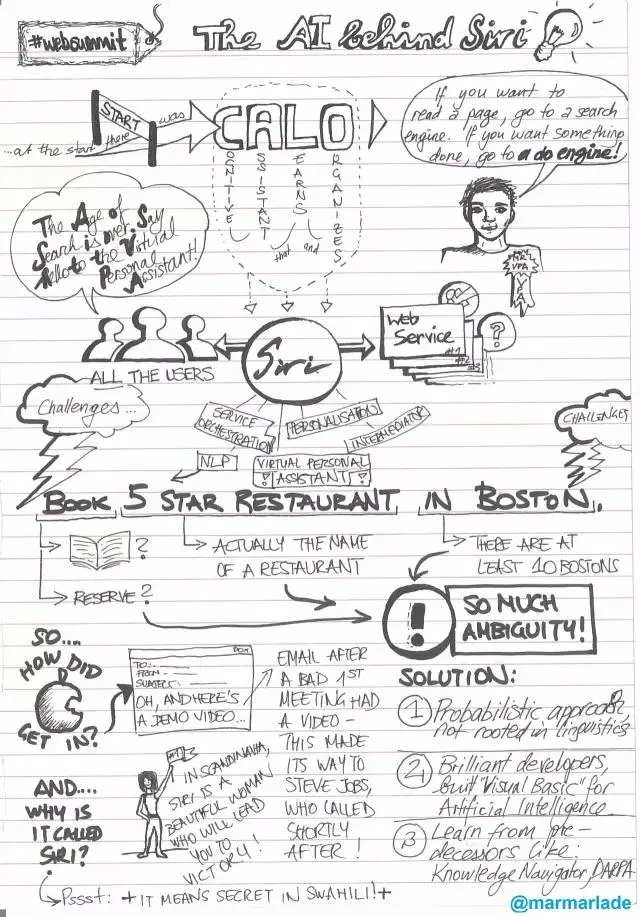 #websummit
The AI behind Siri
...at the start
START
there
was
CALO
COGNITIVE
ASSISTANT
that
LEARNS
and
ORGANIZES
If you want to
read a page, go to a search
engine. If you want something
done, go to a do engine!
The Age of
Search is over. Say
Hello to the Virtual
Personal
Assistant!
VPA
VPA
ALL THE USERS
Siri
Web
Service
#1
#2
#3
?
Challenges...
CHALLENGES
SERVICE
ORCHESTRATION
PERSONALISATION
INTERMEDIATOR
NLP
VIRTUAL PERSONAL
! ASSISTANT !
BOOK 5 STAR RESTAURANT IN BOSTON.
?
RESERVE?
ACTUALLY THE NAME
OF A RESTAURANT
THERE ARE AT
LEAST 10 BOSTONS
!
SO MUCH
AMBIGUITY!
SO....
HOW DID
GET IN?
TO:..
FROM
SUBJECT:
OH, AND HERE'S
A DEMO VIDEO...
EMAIL AFTER
A BAD 1ST
MEETING HAD
A VIDEO –
THIS MADE
ITS WAY TO
STEVE JOBS,
WHO CALLED
SHORTLY
AFTER!
SOLUTION:
1 Probabilistic approach,
not rooted in linguistics
2 Brilliant developers,
built "Visual Basic" for
Artificial Intelligence
3 Learn from pre-
decessors like:
Knowledge Navigator, DARPA
AND....
WHY IS
IT CALLED
SIRI?
IN SCANDINAVIA,
SIRI IS A
BEAUTIFUL WOMAN
WHO WILL LEAD
YOU TO
VICTORY!
Pssst: + IT MEANS SECRET IN SWAHILI! +
@marmarlade